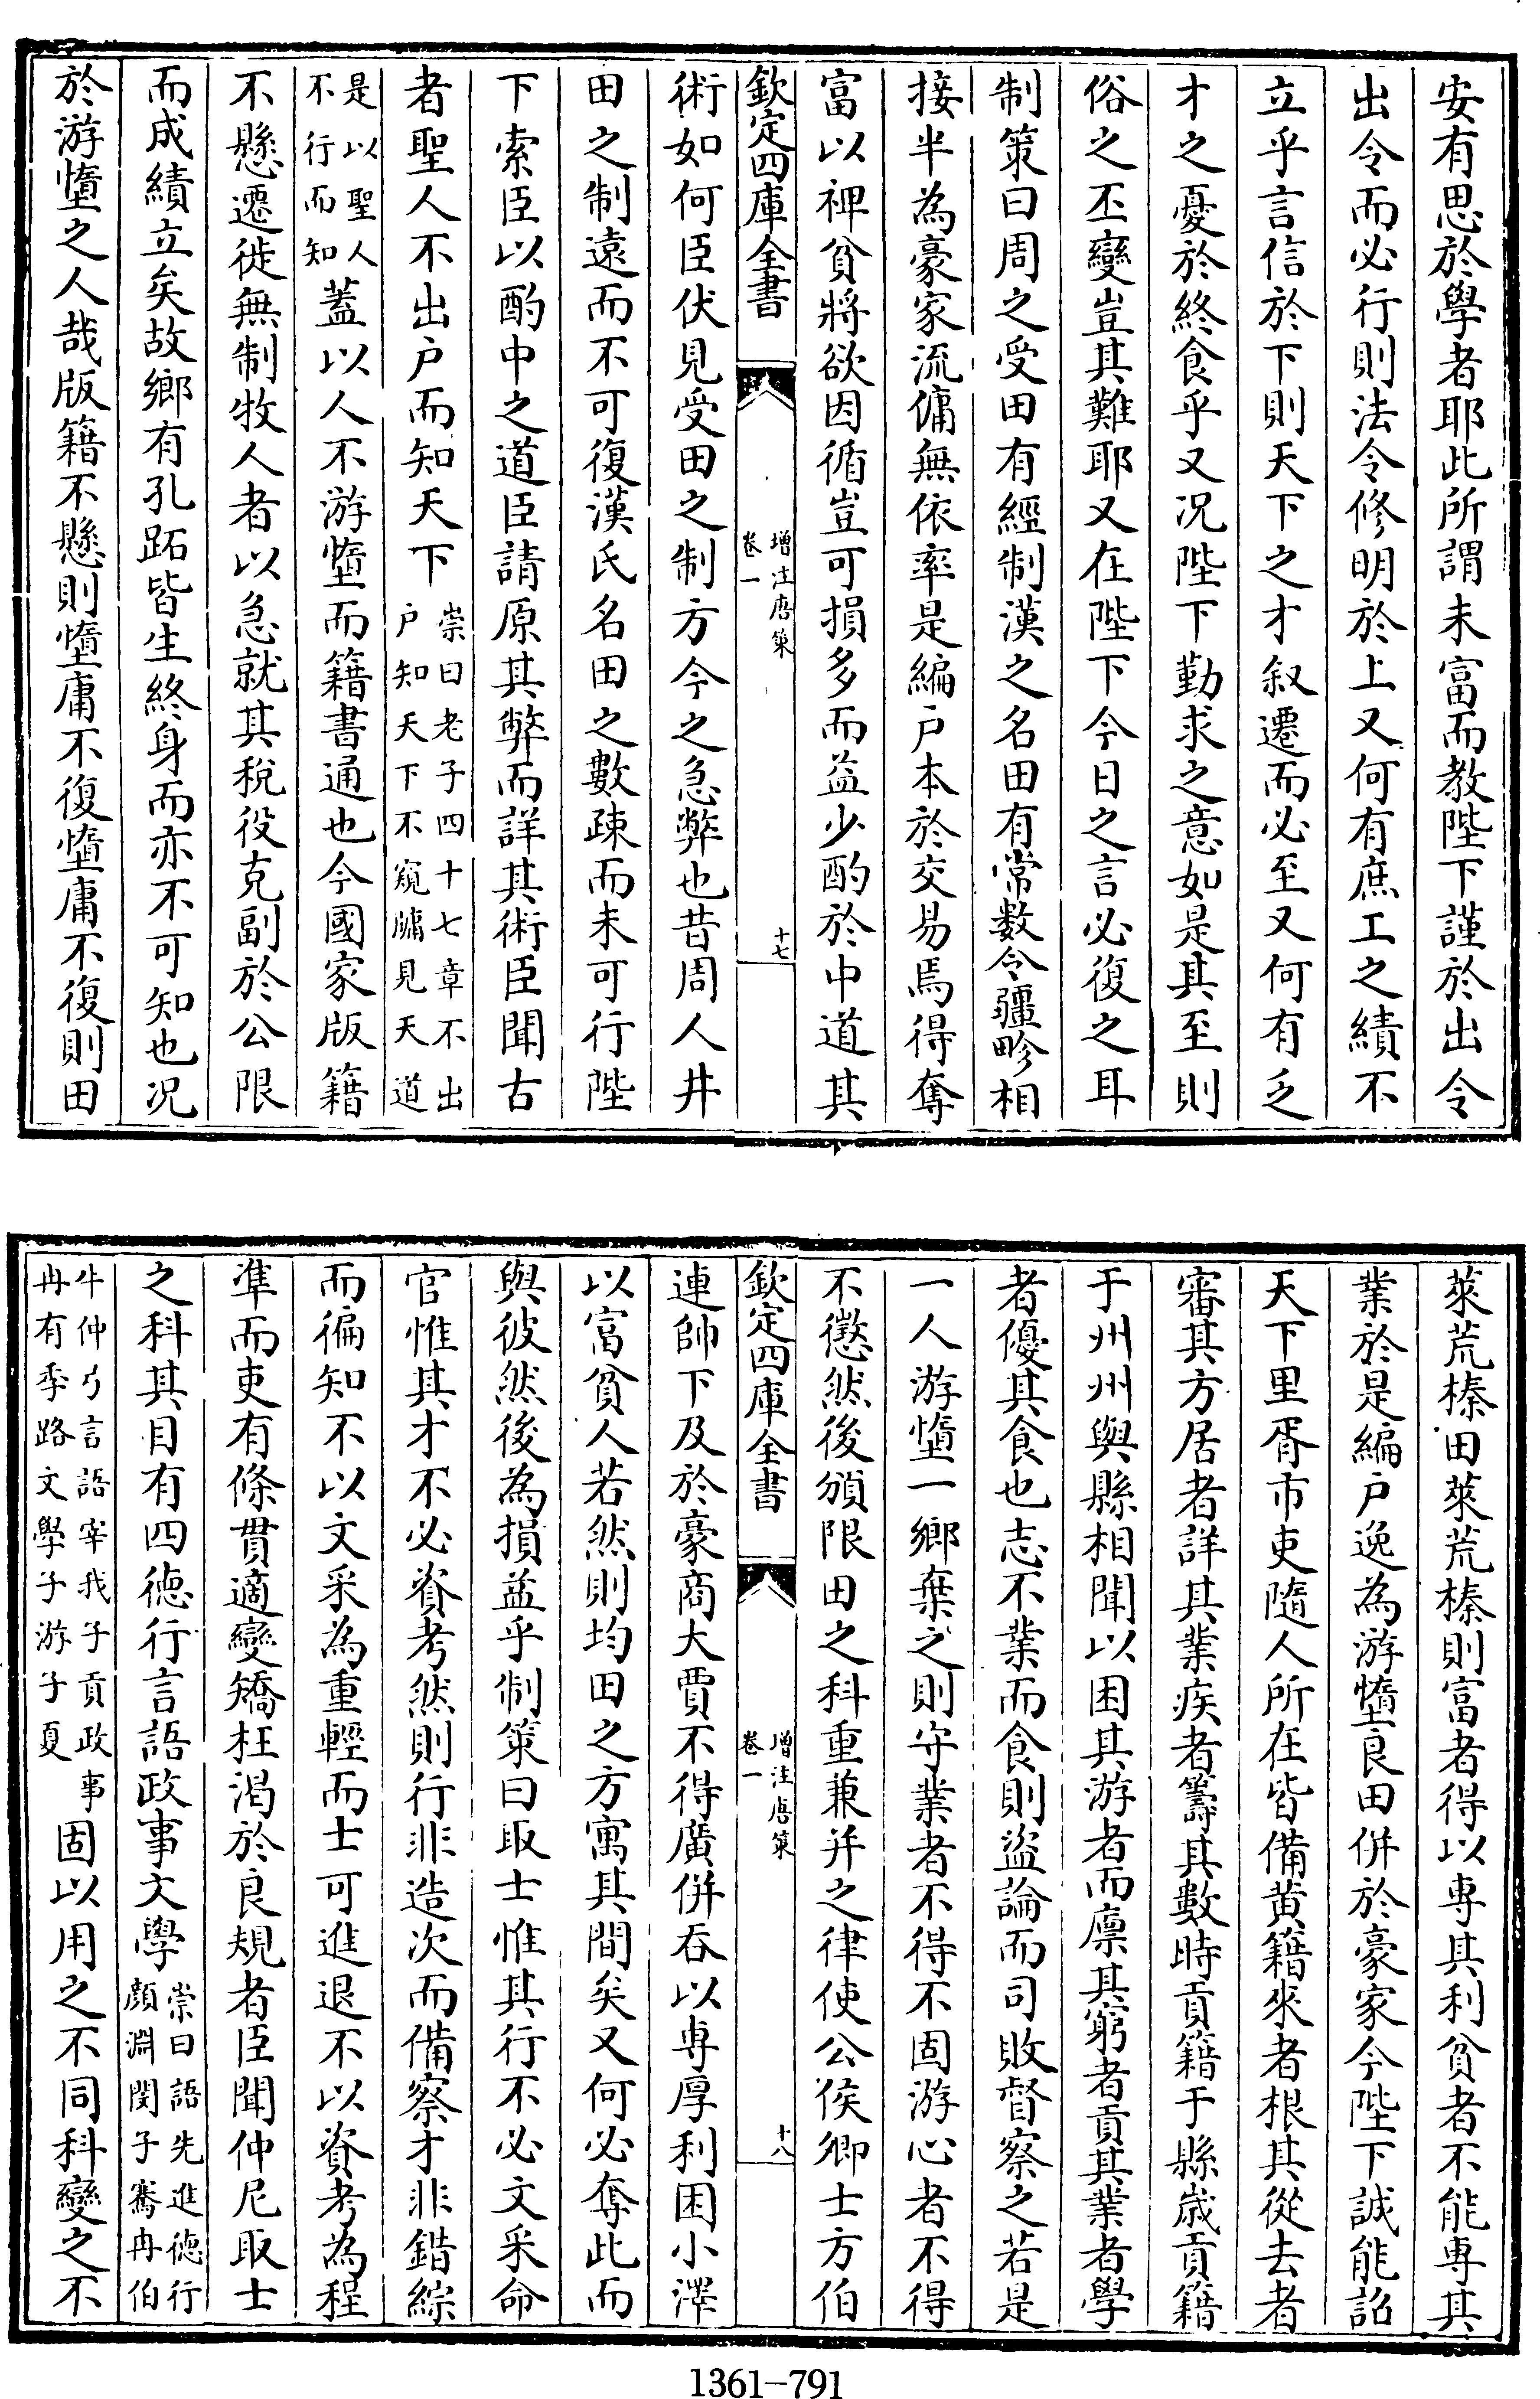 安有思於學者耶此所謂未富而教陛下謹於出令
出令而必行則法令修明於上又何有庶工之績不
立乎言信於下則天下之才叙遷而必至又何有乏
才之憂於終食乎又况陛下勤求之意如是其至則
俗之丕變豈其難耶又在陛下今日之言必復之耳
制策曰周之受田有經制漢之名田有常数今疆畛相
接半為豪家流傭無依率是編户本於交易焉得奪
富以裨貧將欲因循豈可損多而益少酌於中道其
欽定四庫全書
增注唐策
卷一
十七
術如何臣伏見受田之制方今之急弊也昔周人井
田之制遠而不可復漢氏名田之數疎而未可行陛
下索臣以酌中之道臣請原其弊而詳其術臣聞古
者聖人不出户而知天下
崇曰老子四十七章不出
户知天下不窺牖見天道
是以聖人
不行而知
蓋以人不游惰而籍書通也今國家版籍
不懸遷徙無制牧人者以急就其稅役克副於公限
而成績立矣故鄉有孔跖皆生終身而亦不可知也况
於游惰之人哉版籍不懸則惰庸不復惰庸不復則田
萊荒榛田萊荒榛則富者得以專其利貧者不能專其
業於是編户逸為游惰良田併於豪家今陛下誠能詔
天下里胥市吏隨人所在皆備黄籍來者根其從去者
審其方居者詳其業疾者籌其數時貢籍于縣歲貢籍
于州州與縣相聞以困其游者而廪其窮者貢其業者學
者優其食也志不業而食則盜論而司敗督察之若是
一人游惰一鄉棄之則守業者不得不固游心者不得
不懲然後頒限田之科重兼并之律使公侯卿士方伯
欽定四庫全書
增注唐策
卷一
十八
連帥下及於豪商大賈不得廣併吞以専厚利困小澤
以富貧人若然則均田之方寓其間矣又何必奪此而
與彼然後為損益乎制策曰取士惟其行不必文采命
官惟其才不必資考然則行非造次而備察才非錯綜
而徧知不以文采為重輕而士可進退不以資考為程
準而吏有條貫適變矯枉渴於良規者臣聞仲尼取士
之科其目有四德行言語政事文學
崇曰語先進德行
顔淵閔子騫冉伯
牛仲弓言語宰我子貢政事
冉有季路文學子游子夏
固以用之不同科變之不
1361-791